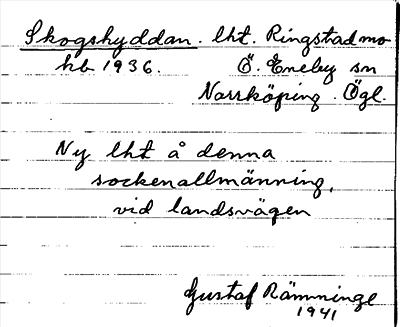 Skogshyddan. lht. Ringstadmo
hb 1936. Ö. Eneby sn
Norrköping. Ögl.
Ny lht å denna
sockenallmänning,
vid landsvägen
Gustaf Rämninge
1941